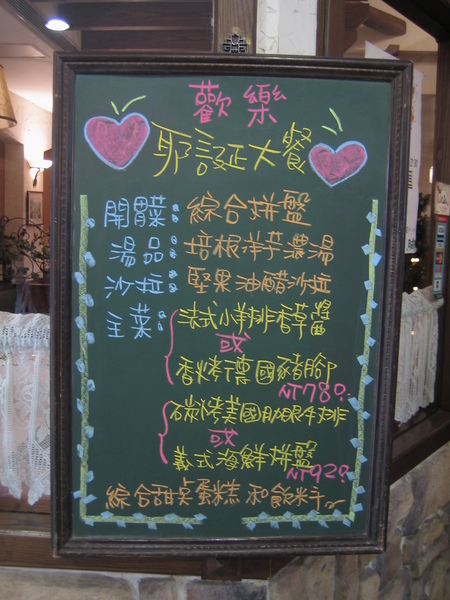 歡樂
耶誕大餐
開胃菜：綜合拼盤
湯品：培根洋芋濃湯
沙拉：堅果油醋沙拉
主菜：法式小羊排香草醬
或
香烤德國豬腳
NT780.
碳烤美國肋眼牛排
或
義式海鮮拼盤
NT920.
綜合甜點蛋糕和飲料